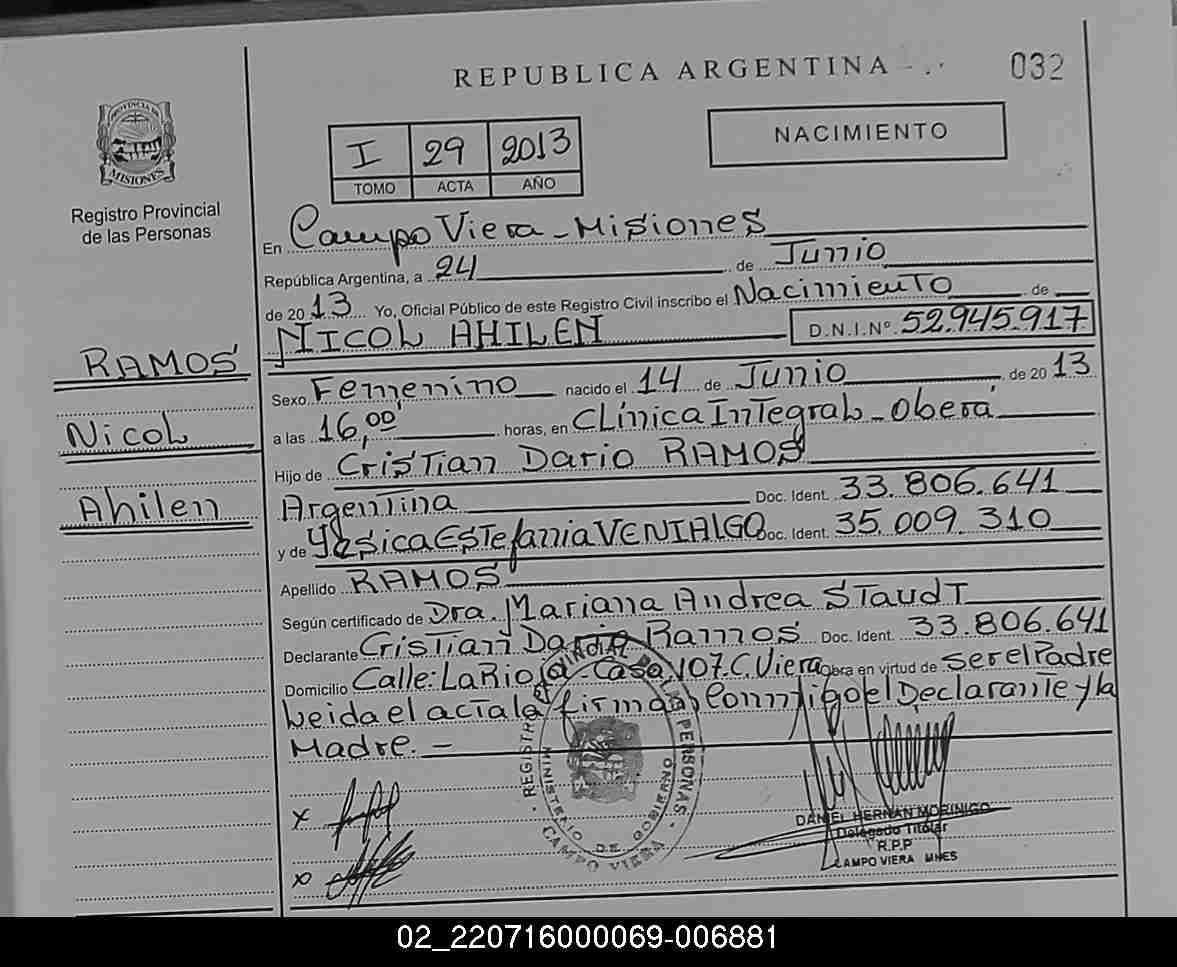 REPUBLICA ARGENTINA
032
PROVINCIA DE
MISIONES
Registro Provincial
de las Personas
I 29 2013
TOMO ACTA AÑO
NACIMIENTO
En Campo Viera - Misiones
República Argentina, a 24 de Junio
de 2013 Yo, Oficial Público de este Registro Civil inscribo el Nacimiento de
NICOL AHILEN D.N.I.Nº 52.945.917
RAMOS
Sexo Femenino nacido el 14 de Junio de 2013
Nicol
a las 16,00' horas, en CLínica InTegral - Oberá
Hijo de CrisTian Dario RAMOS
Ahilen
ArgenTina Doc. Ident. 33.806.641
y de Yésica ESTefania VENIALGO Doc. Ident. 35.009.310
Apellido RAMOS
Según certificado de Dra. Mariana Andrea STaudT
Declarante CrisTian Dario Ramos Doc. Ident. 33.806.641
Domicilio Calle: La Rioja - Casa 107. C. Viera Obra en virtud de ser el Padre
Leida el acta la firman Conmigo el Declarante y la
Madre. -
REGISTRO PROVINCIAL DE LAS PERSONAS
MINISTERIO DE GOBIERNO
CAMPO VIERA
x
x
DANIEL HERNAN MORINIGO
Delegado Titular
R.P.P
CAMPO VIERA MNES
02_220716000069-006881